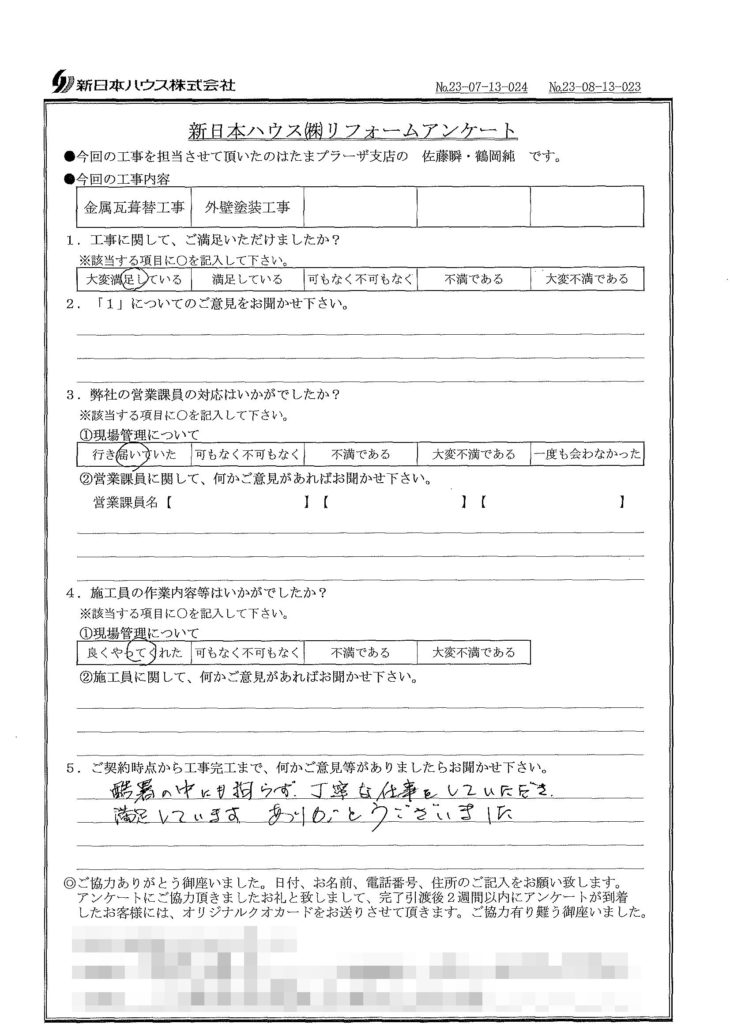 新日本ハウス株式会社
№23-07-13-024 №23-08-13-023
新日本ハウス㈱リフォームアンケート
●今回の工事を担当させて頂いたのはたまプラーザ支店の 佐藤瞬・鶴岡純 です。
●今回の工事内容
金属瓦葺替工事 外壁塗装工事
1．工事に関して、ご満足いただけましたか？
※該当する項目に○を記入して下さい。
大変満足している 満足している 可もなく不可もなく 不満である 大変不満である
2．「1」についてのご意見をお聞かせ下さい。
3．弊社の営業課員の対応はいかがでしたか？
※該当する項目に○を記入して下さい。
①現場管理について
行き届いていた 可もなく不可もなく 不満である 大変不満である 一度も会わなかった
②営業課員に関して、何かご意見があればお聞かせ下さい。
営業課員名【 】【 】【 】
4．施工員の作業内容等はいかがでしたか？
※該当する項目に○を記入して下さい。
①現場管理について
良くやってくれた 可もなく不可もなく 不満である 大変不満である
②施工員に関して、何かご意見があればお聞かせ下さい。
5．ご契約時点から工事完工まで、何かご意見等がありましたらお聞かせ下さい。
酷暑の中にも拘らず、丁寧な仕事をしていただき、
満足しています ありがとうございました
◎ご協力ありがとう御座いました。日付、お名前、電話番号、住所のご記入をお願い致します。
アンケートにご協力頂きましたお礼と致しまして、完了引渡後２週間以内にアンケートが到着
したお客様には、オリジナルクオカードをお送りさせて頂きます。ご協力有り難う御座いました。